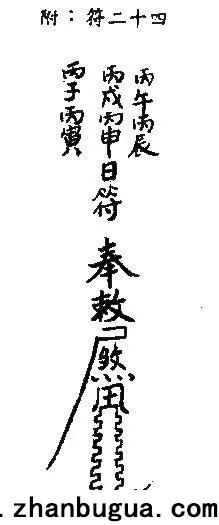 附：符二十四
丙午丙辰
丙戌丙申日符
丙子丙寅
奉敕
煞
.zhanbugua.com